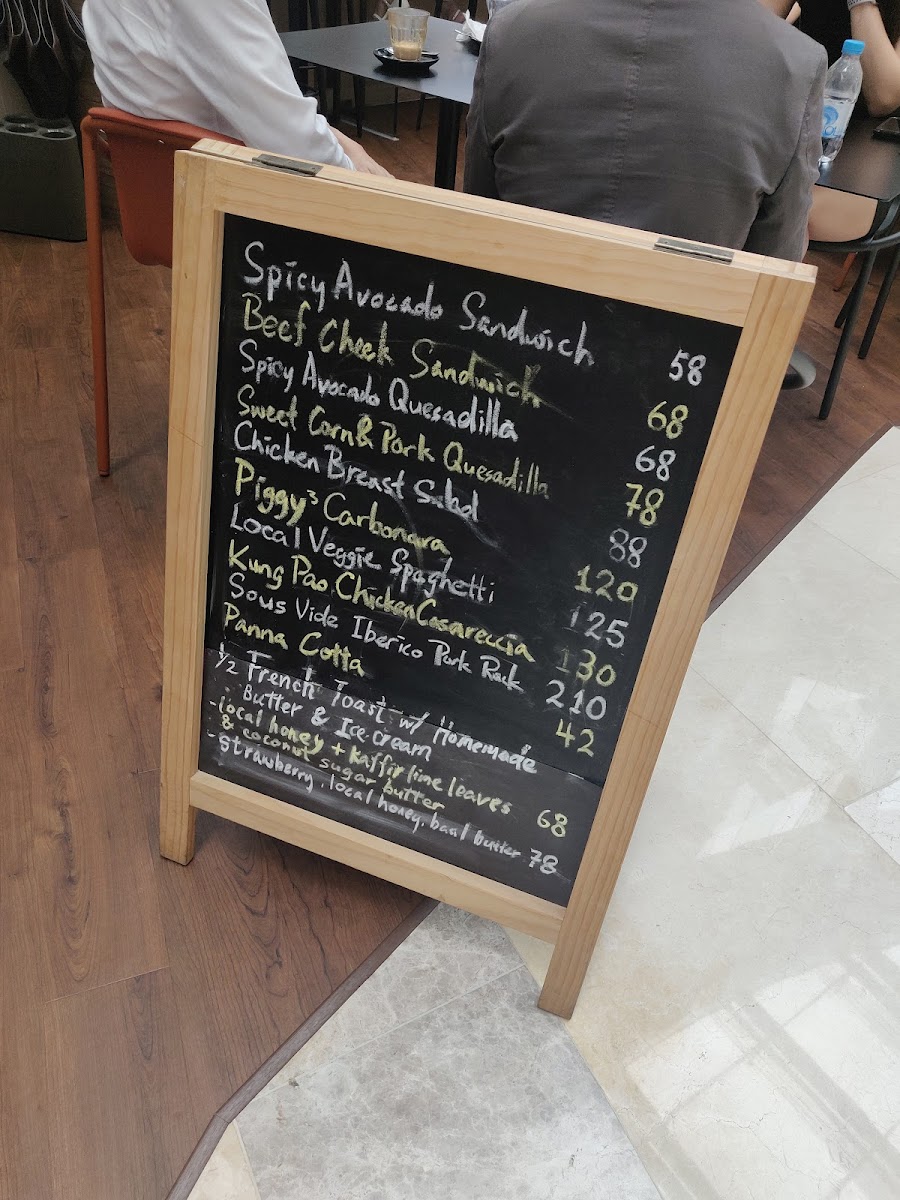 Spicy Avocado Sandwich 58
Beef Cheek Sandwich 68
Spicy Avocado Quesadilla 68
Sweet Corn & Pork Quesadilla 78
Chicken Breast Salad 88
Piggy³ Carbonara 120
Local Veggie Spaghetti 125
Kung Pao Chicken Casareccia 130
Sous Vide Iberico Pork Rack 210
Panna Cotta 42
½ French Toast w/ Homemade
Butter & Ice-cream
-local honey + kaffir lime leaves
& coconut sugar butter 68
-strawberry, local honey, basil butter 78